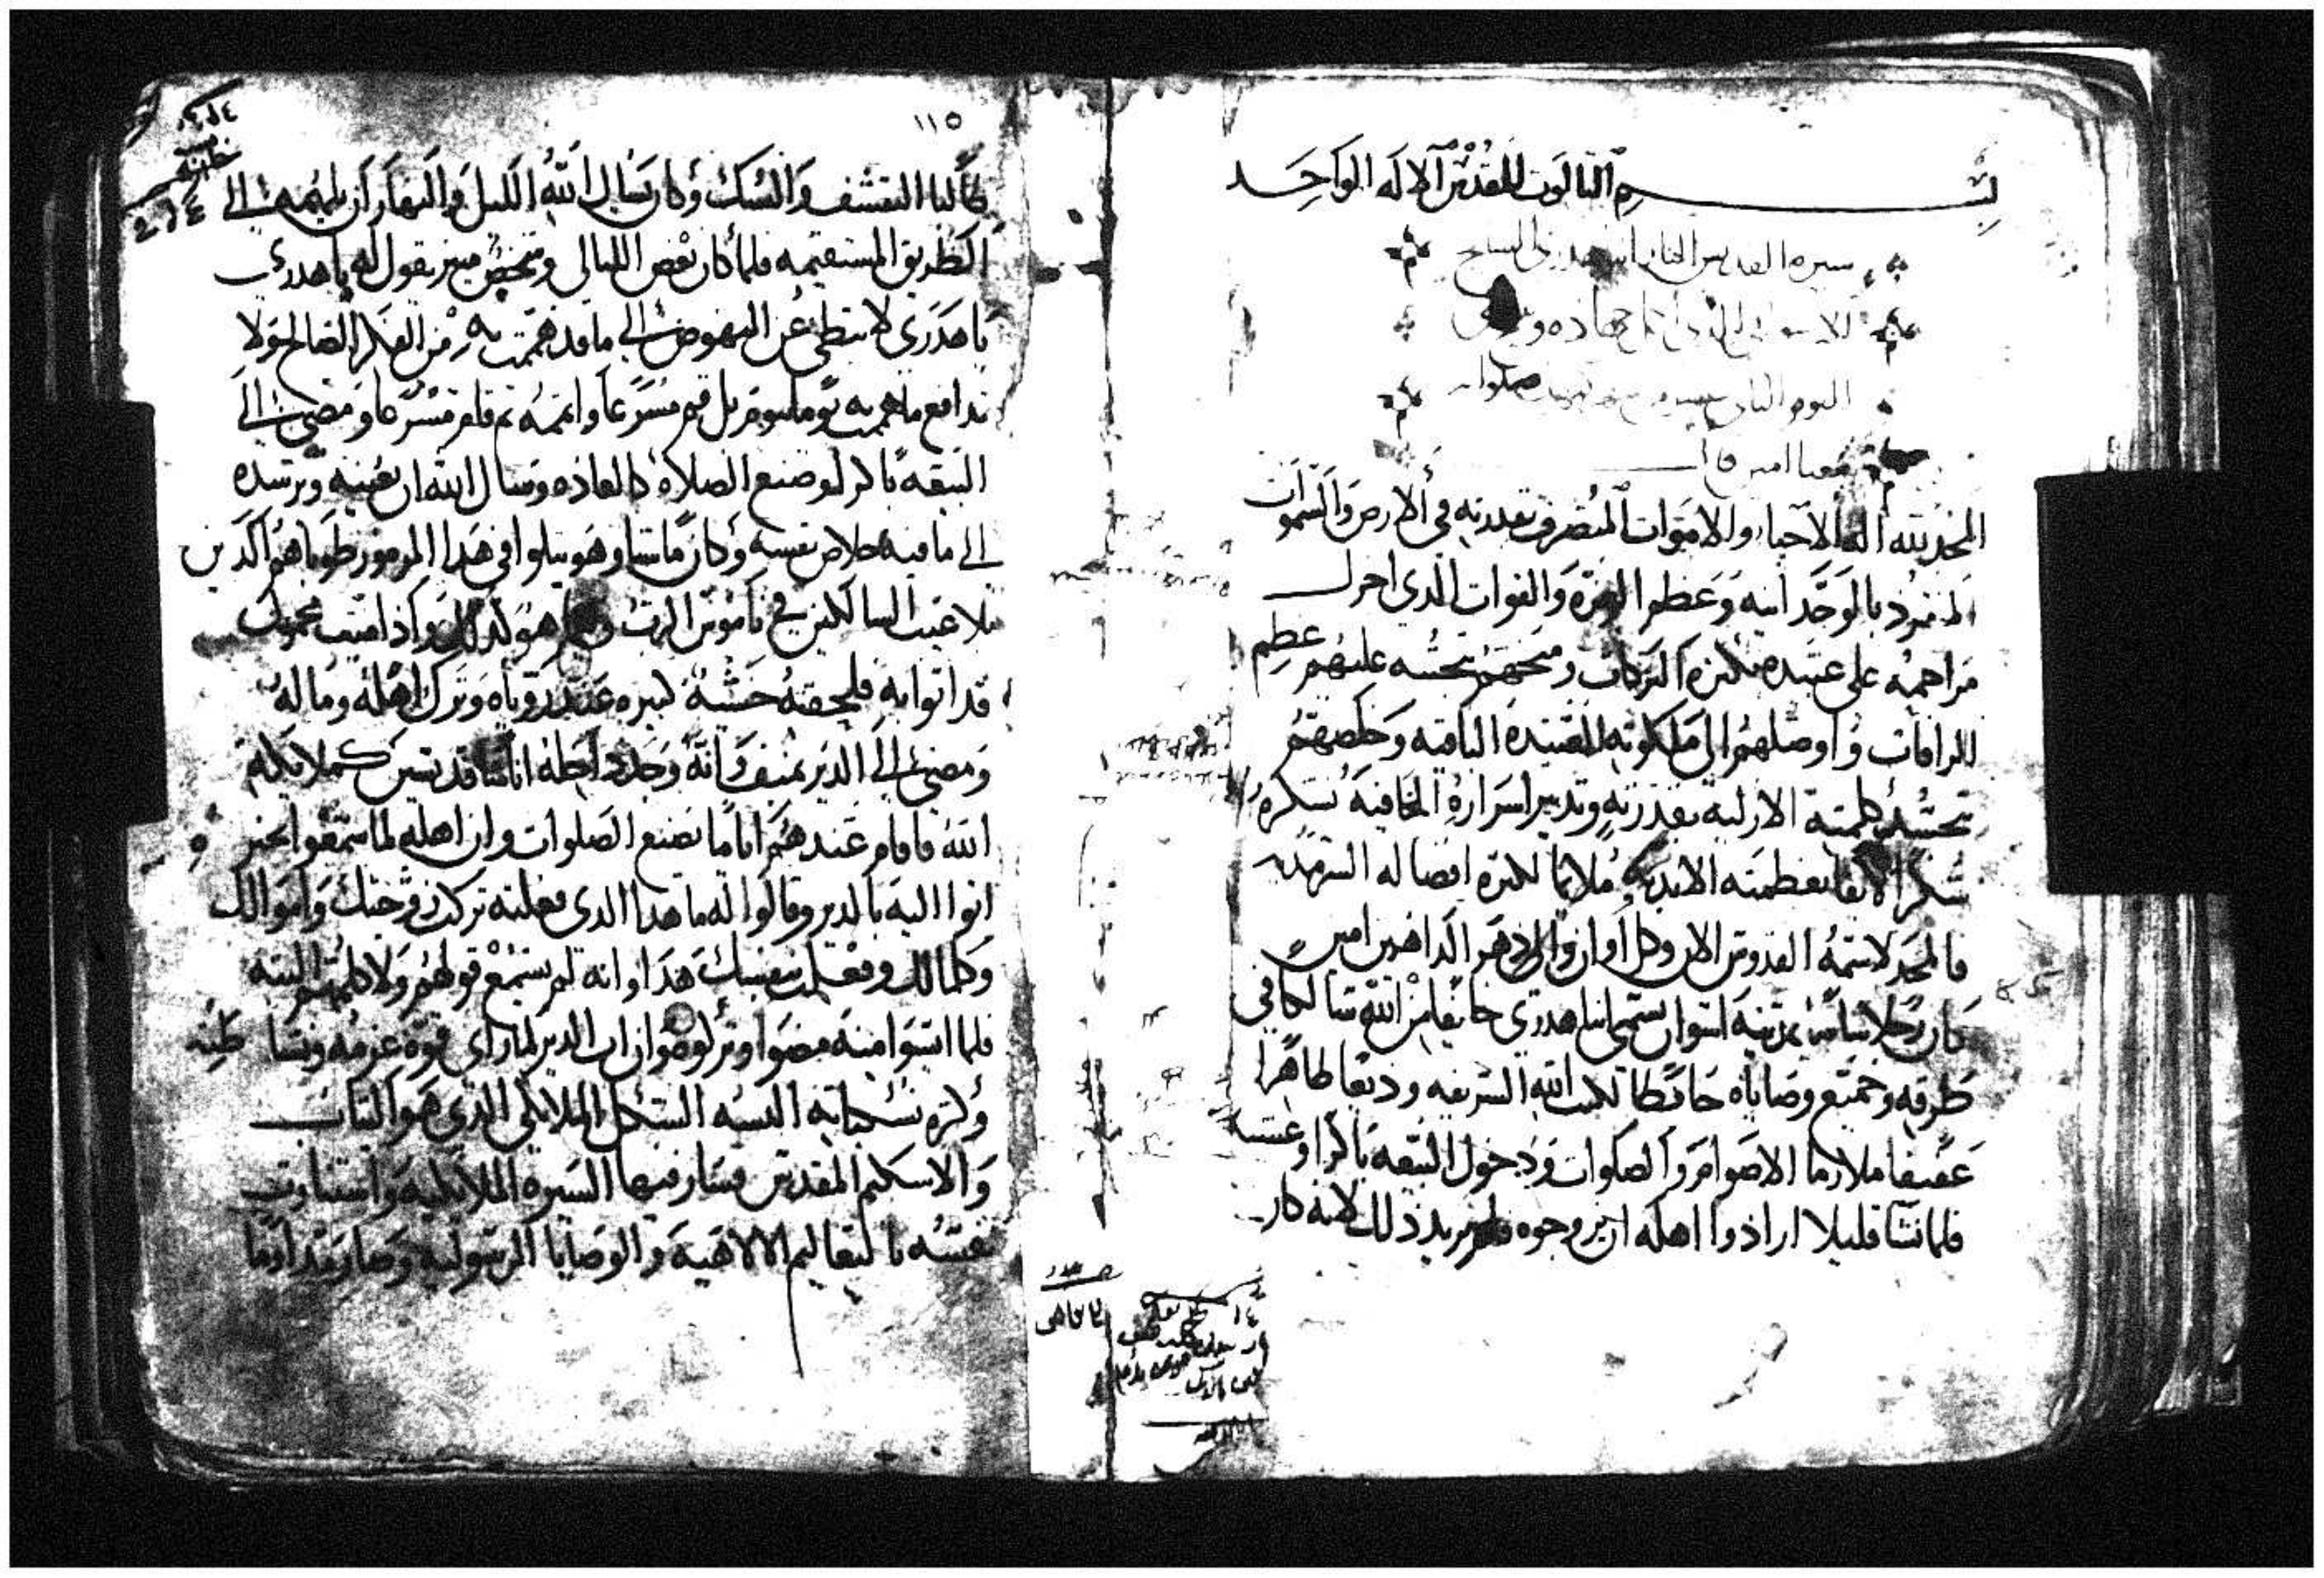 بسم التالوت المقدس الاله الواحد
سيره القديس انبا هدري السايح
اليوم التاني
معنا امين قال
المجد لله اله الاحيا والاموات المتصرف بقدرته في الارض والسموات
المنفرد بالوحدانيه وعظم العزه والقوات الدي اجزل
مراحمه على عبيده بكثرة البركات ومنحهم بتحننه عليهم عظيم
الرافات واوصلهم الى ملكوته العتيده الباقيه وخلصهم
بتجسد كلمته الازليه بقدرته وتدبير اسراره الخافيه نشكره
شكرا لايقا بعظمته الابديه ملايما لكثرة افضاله السرمديه
فالمجد لاسمه القدوس الان وكل اوان والى دهر الداهرين امين
كان رجلا شابا بمدينة اسوان يسمى انبا هدري خايفا من الله سالكا في
طرقه وجميع وصاياه حافظا لكتب الله الشريفه وديعا طاهرا
عفيفا ملازما الاصوام والصلوات ودخول البيعه باكرا وعشيه
فلما نشا قليلا ارادوا اهله ان يزوجوه فلم يريد ذلك لانه كان
١١٥
طالبا التقشف والنسك وكان يسال الله الليل والنهار ان يلهمه الى
الطريق المستقيمه فلما كان بعض الليالي وشخص منير يقول له يا هدري
يا هدري لا تبطي عن النهوض الى ما قد هممت به من الفكر الصالح ولا
تدافع ما هممت به يوما بيوم بل قم مسرعا واتمه ثم قام مسرعا ومضى الى
البيعه باكر لوضع الصلاه كالعاده وسال الله ان يعينه ويرشده
الى ما فيه خلاص نفسه وكان ماشيا وهو يتلوا في هدا المزمور طوباهم الدين
بلا عيب السالكين في ناموس الرب هو كدلك واذا ميت محمول
قد اتوا به فلحقته خشية كبيره عند روياه وترك اهله وماله
ومضى الى الدير بمنف كانه وجد راحة اناسا قد تيسرت كملايكة
الله فاقام عندهم اياما يصنع الصلوات وان اهله لما سمعوا بخبره
اتوا اليه بالدير وقالوا له ما هدا الدي فعلته تركت زوجتك واموالك
وكمالك وفعلت بنفسك هدا وانه لم يسمع قولهم ولا كلمهم البته
فلما ايسوا منه مضوا وتركوه وان اب الدير لما راى قوة عزمه ونشاطه
وكثرة نسكياته البسه الشكل الملايكي الدي هو التياب
والاسكيم المقدس فسار فيها السيره الملايكيه واستنارت
نفسه بالتعاليم الالاهيه والوصايا الرسوليه وصار مقداما